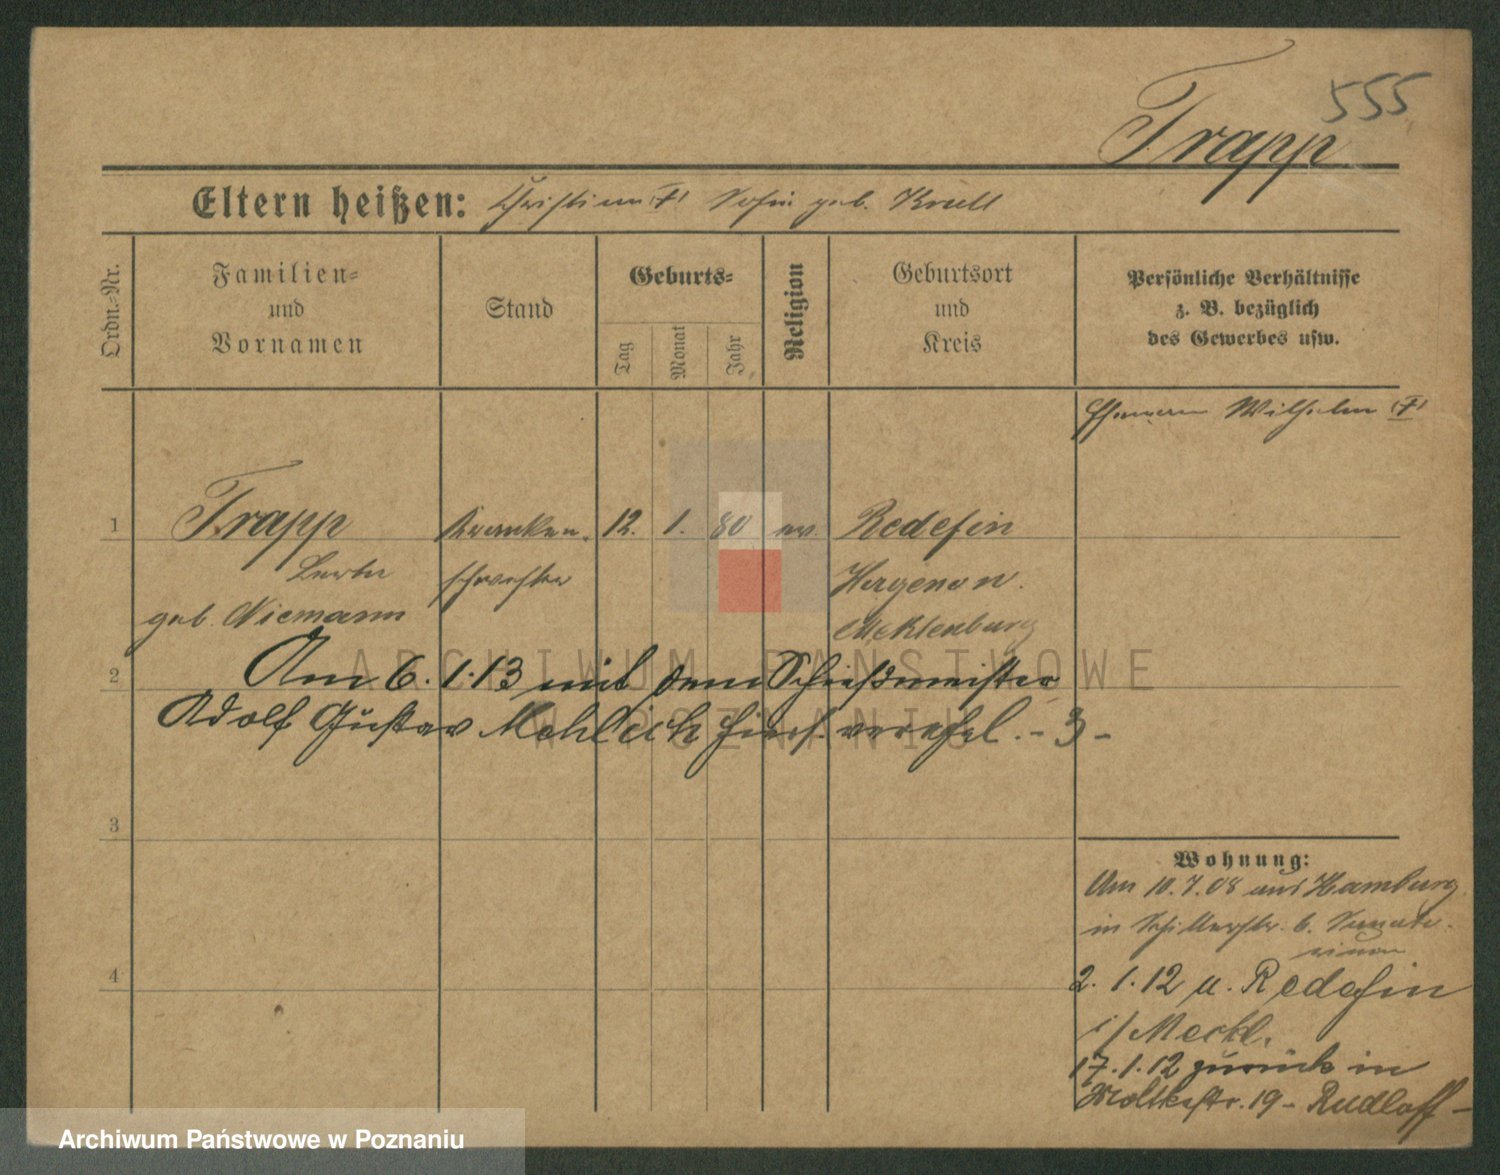 555
Trapp
Eltern heißen: Christian (†) Sofie geb. Krull
Ordn.-Nr.
Familien-
und
Vornamen
Stand
Geburts-
Tag
Monat
Jahr
Religion
Geburtsort
und
Kreis
Persönliche Verhältnisse
z. B. bezüglich
des Gewerbes usw.
Ehemann Wilhelm (†)
1
Trapp
geb. Niemann
Kranken-
schwester
12. 1. 80 ev.
Redefin
Hagenow.
Mecklenburg
2
Am 6.1.13 mit dem Schießmeister
Adolf Gustav Mehlich hier verehel. - 3 -
3
4
Wohnung:
Am 10.7.08 aus Hamburg
in Schillerstr. 6. Sanato-
rium
2.1.12 u. Redefin
i/Meckl.
17.1.12 zurück in
Moltkestr. 19 - Rudloff -
ARCHIWUM PAŃSTWOWE
W POZNANIU
Archiwum Państwowe w Poznaniu